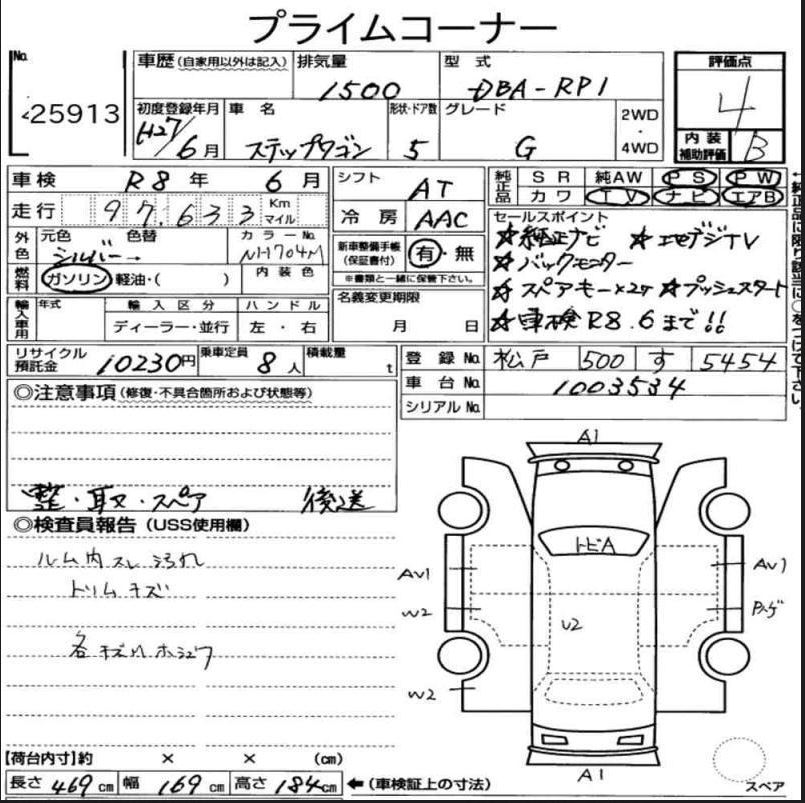 プライムコーナー
No.
25913
車歴 (自家用以外は記入)
排気量 1500
型式 DBA-RP1
初度登録年月 H27/6月
車名 ステップワゴン
形状・ドア数 5
グレード G
2WD・4WD
評価点 4
内装補助評価 B
車検 R8年 6月
走行 97,633 Km マイル
シフト AT
冷房 AAC
純正品 SR 純AW PS PW
カワ TV ナビ エアB
外色 元色 シルバー 色替
カラーNo. NH704M
内装色
燃料 ガソリン 軽油・( )
新車整備手帳(保証書付) 有・無
※書類と一緒に保管下さい。
名義変更期限
月 日
セールスポイント
☆純正ナビ ☆エセグジTV
☆バックモニター
☆スペアキー×2ケ ☆プッシュスタート
☆車検R8.6まで!!
輸入車用 年式 輸入区分 ハンドル
ディーラー・並行 左・右
リサイクル預託金 10230円
乗車定員 8人
積載量 t
登録No. 松戸 500 す 5454
車台No. 1003534
シリアルNo.
◎注意事項(修復・不具合箇所および状態等)
整・取・スペア 後送
◎検査員報告(USS使用欄)
ルーム内スレ汚れ
トリムキズ
各キズハホシュウ
A1
トビA
AV1
AV1
W2
U2
W2
A1
スペア
【荷台内寸】約 × × (cm)
長さ 469cm 幅 169cm 高さ 184cm ←(車検証上の寸法)